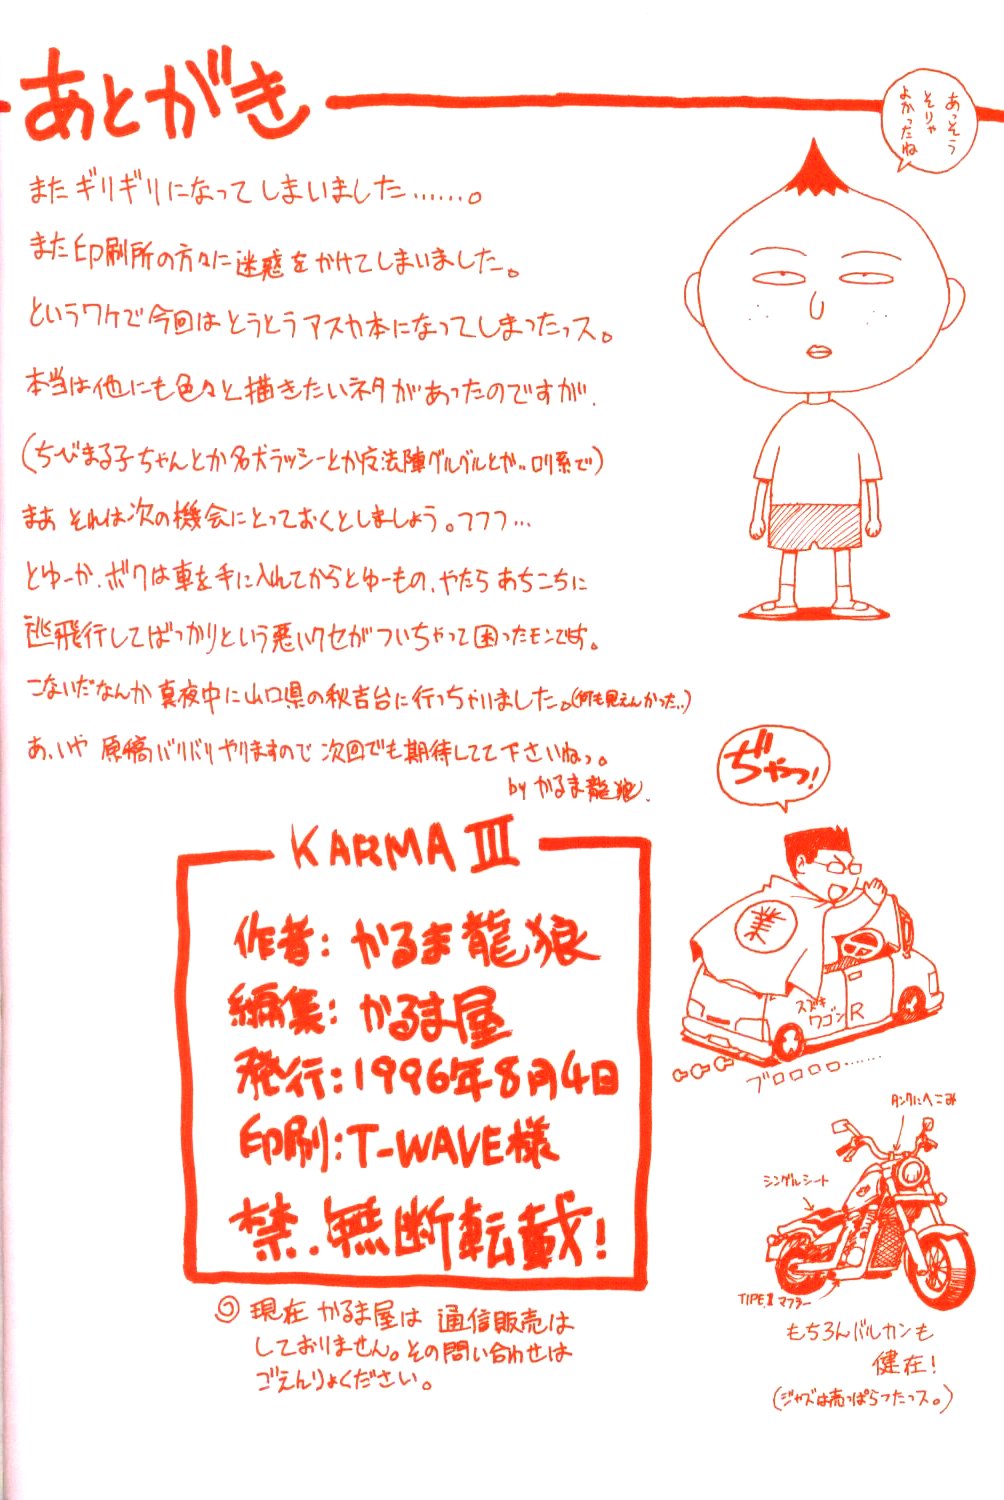 あとがき
あっそう
そりゃ
よかったね
またギリギリになってしまいました……。
また印刷所の方々に迷惑をかけてしまいました。
というワケで今回はとうとうアスカ本になってしまったっス。
本当は他にも色々と描きたいネタがあったのですが、
(ちびまる子ちゃんとか名犬ラッシーとか魔法陣グルグルとか‥ロリ系で)
まあ それは次の機会にとっておくとしましょう。フフフ…
とゆーか、ボクは車を手に入れてからとゆーもの、やたら あちこちに
逃飛行してばっかりという悪いクセがついちゃって困ったモンです。
こないだなんか真夜中に山口県の秋吉台に行っちゃいました。(何も見えんかった‥)
あ、いや 原稿バリバリやりますので 次回でも期待してて下さいねっ。
by かるま龍狼.
ぢゃっ!
業
スズキ
ワゴンR
ブロロロロ……
KARMA III
作者: かるま龍狼
編集: かるま屋
発行: 1996年8月4日
印刷: T-WAVE様
禁.無断転載!
◎ 現在 かるま屋は 通信販売は
しておりません。その問い合わせは
ごえんりょください。
タンクにへこみ
シングルシート
TIPEⅡマフラー
もちろんバルカンも
健在!
(ジャズは売っぱらったっス。)